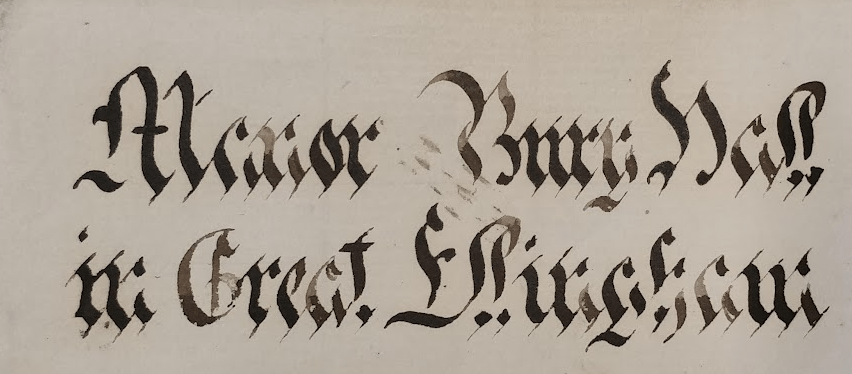 Manor Bury Hall
in Great Ellingham